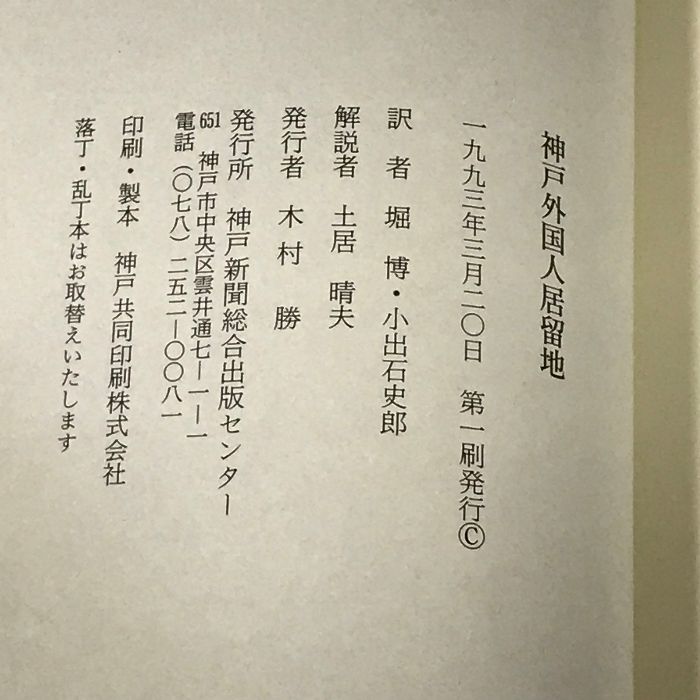 神戸外国人居留地
一九九三年三月二〇日　第一刷発行©
訳　者　堀　博・小出石史郎
解説者　土居　晴夫
発行者　木村　勝
発行所　神戸新聞総合出版センター
651　神戸市中央区雲井通七―一―一
電話（〇七八）二五二―〇〇八一
印刷・製本　神戸共同印刷株式会社
落丁・乱丁本はお取替えいたします